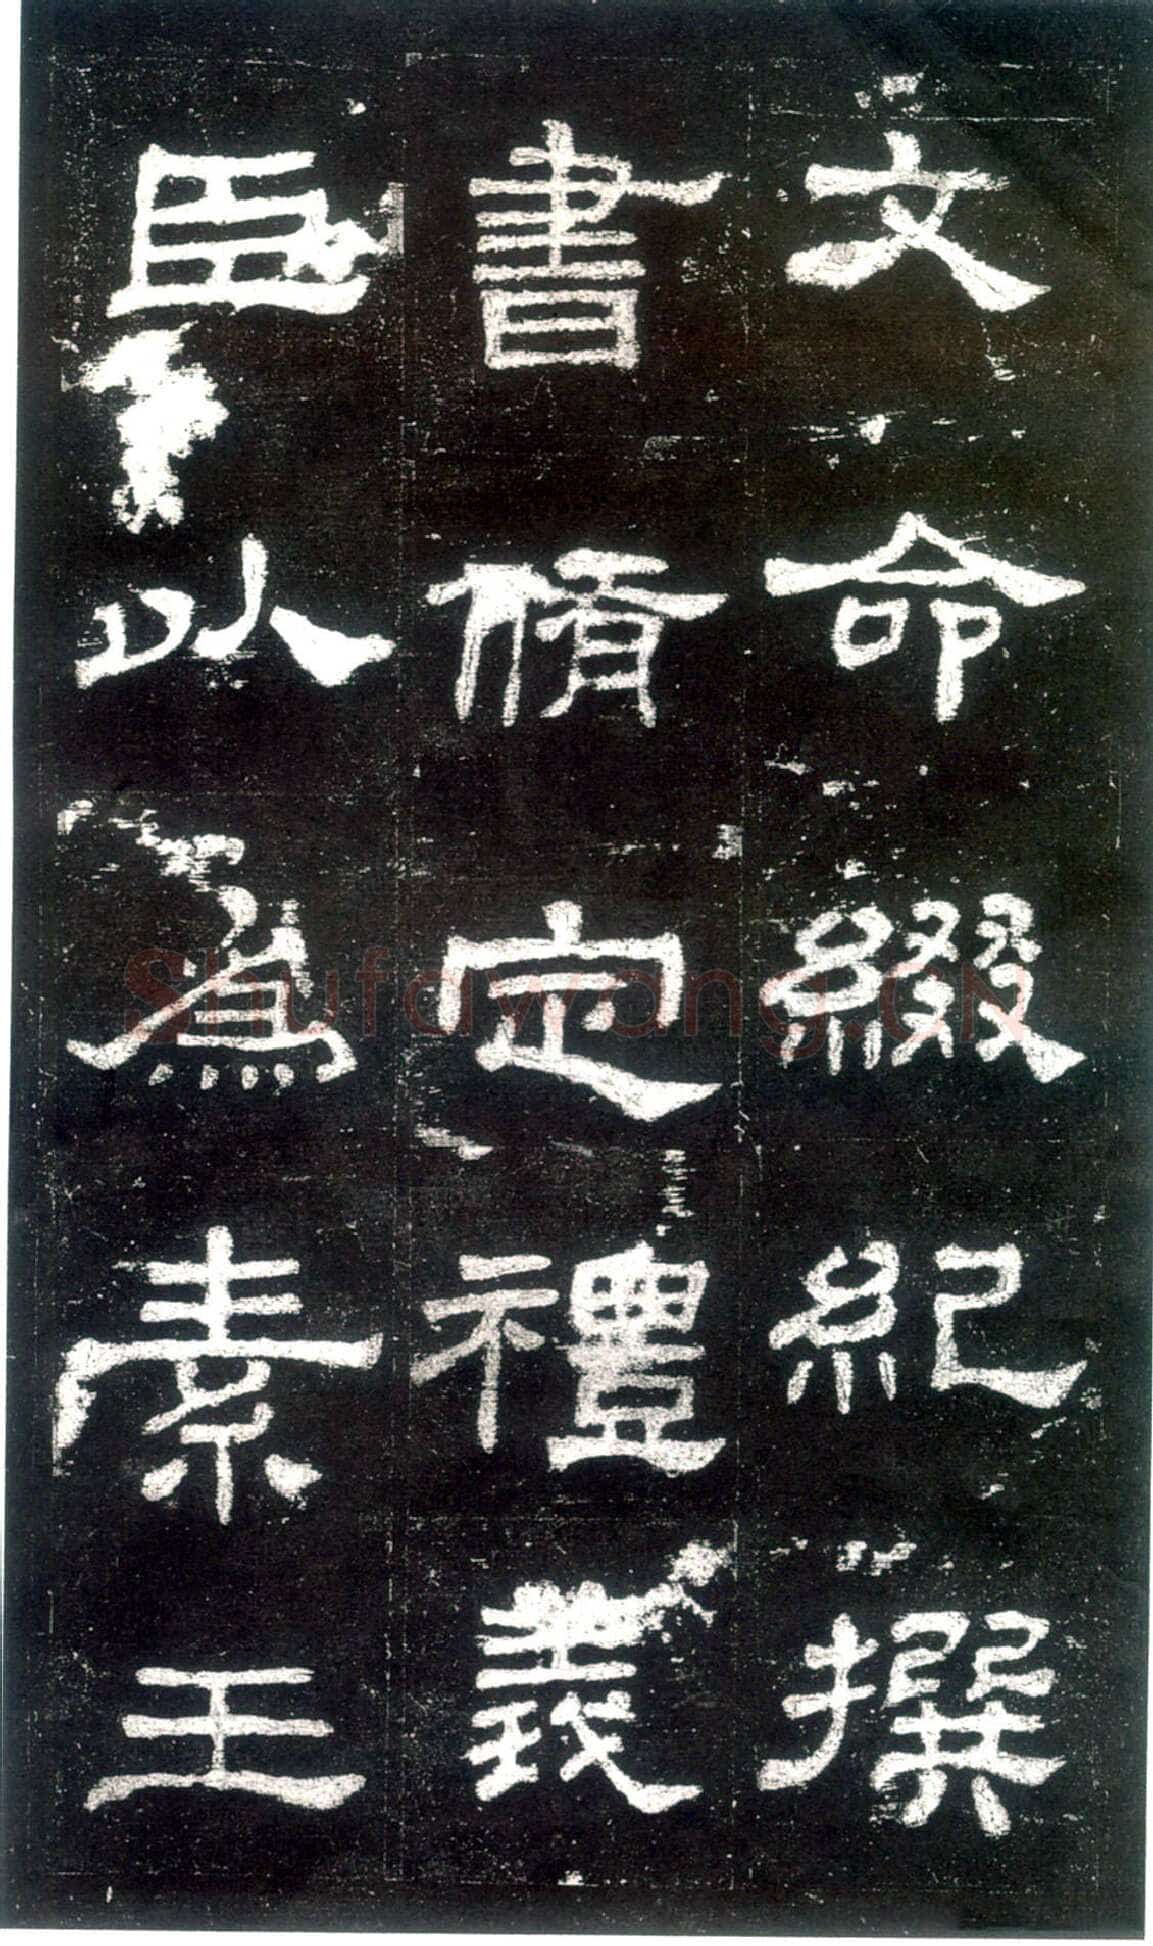 文命綴紀撰
書脩定禮義
臣以爲素王
Shufawang.CN